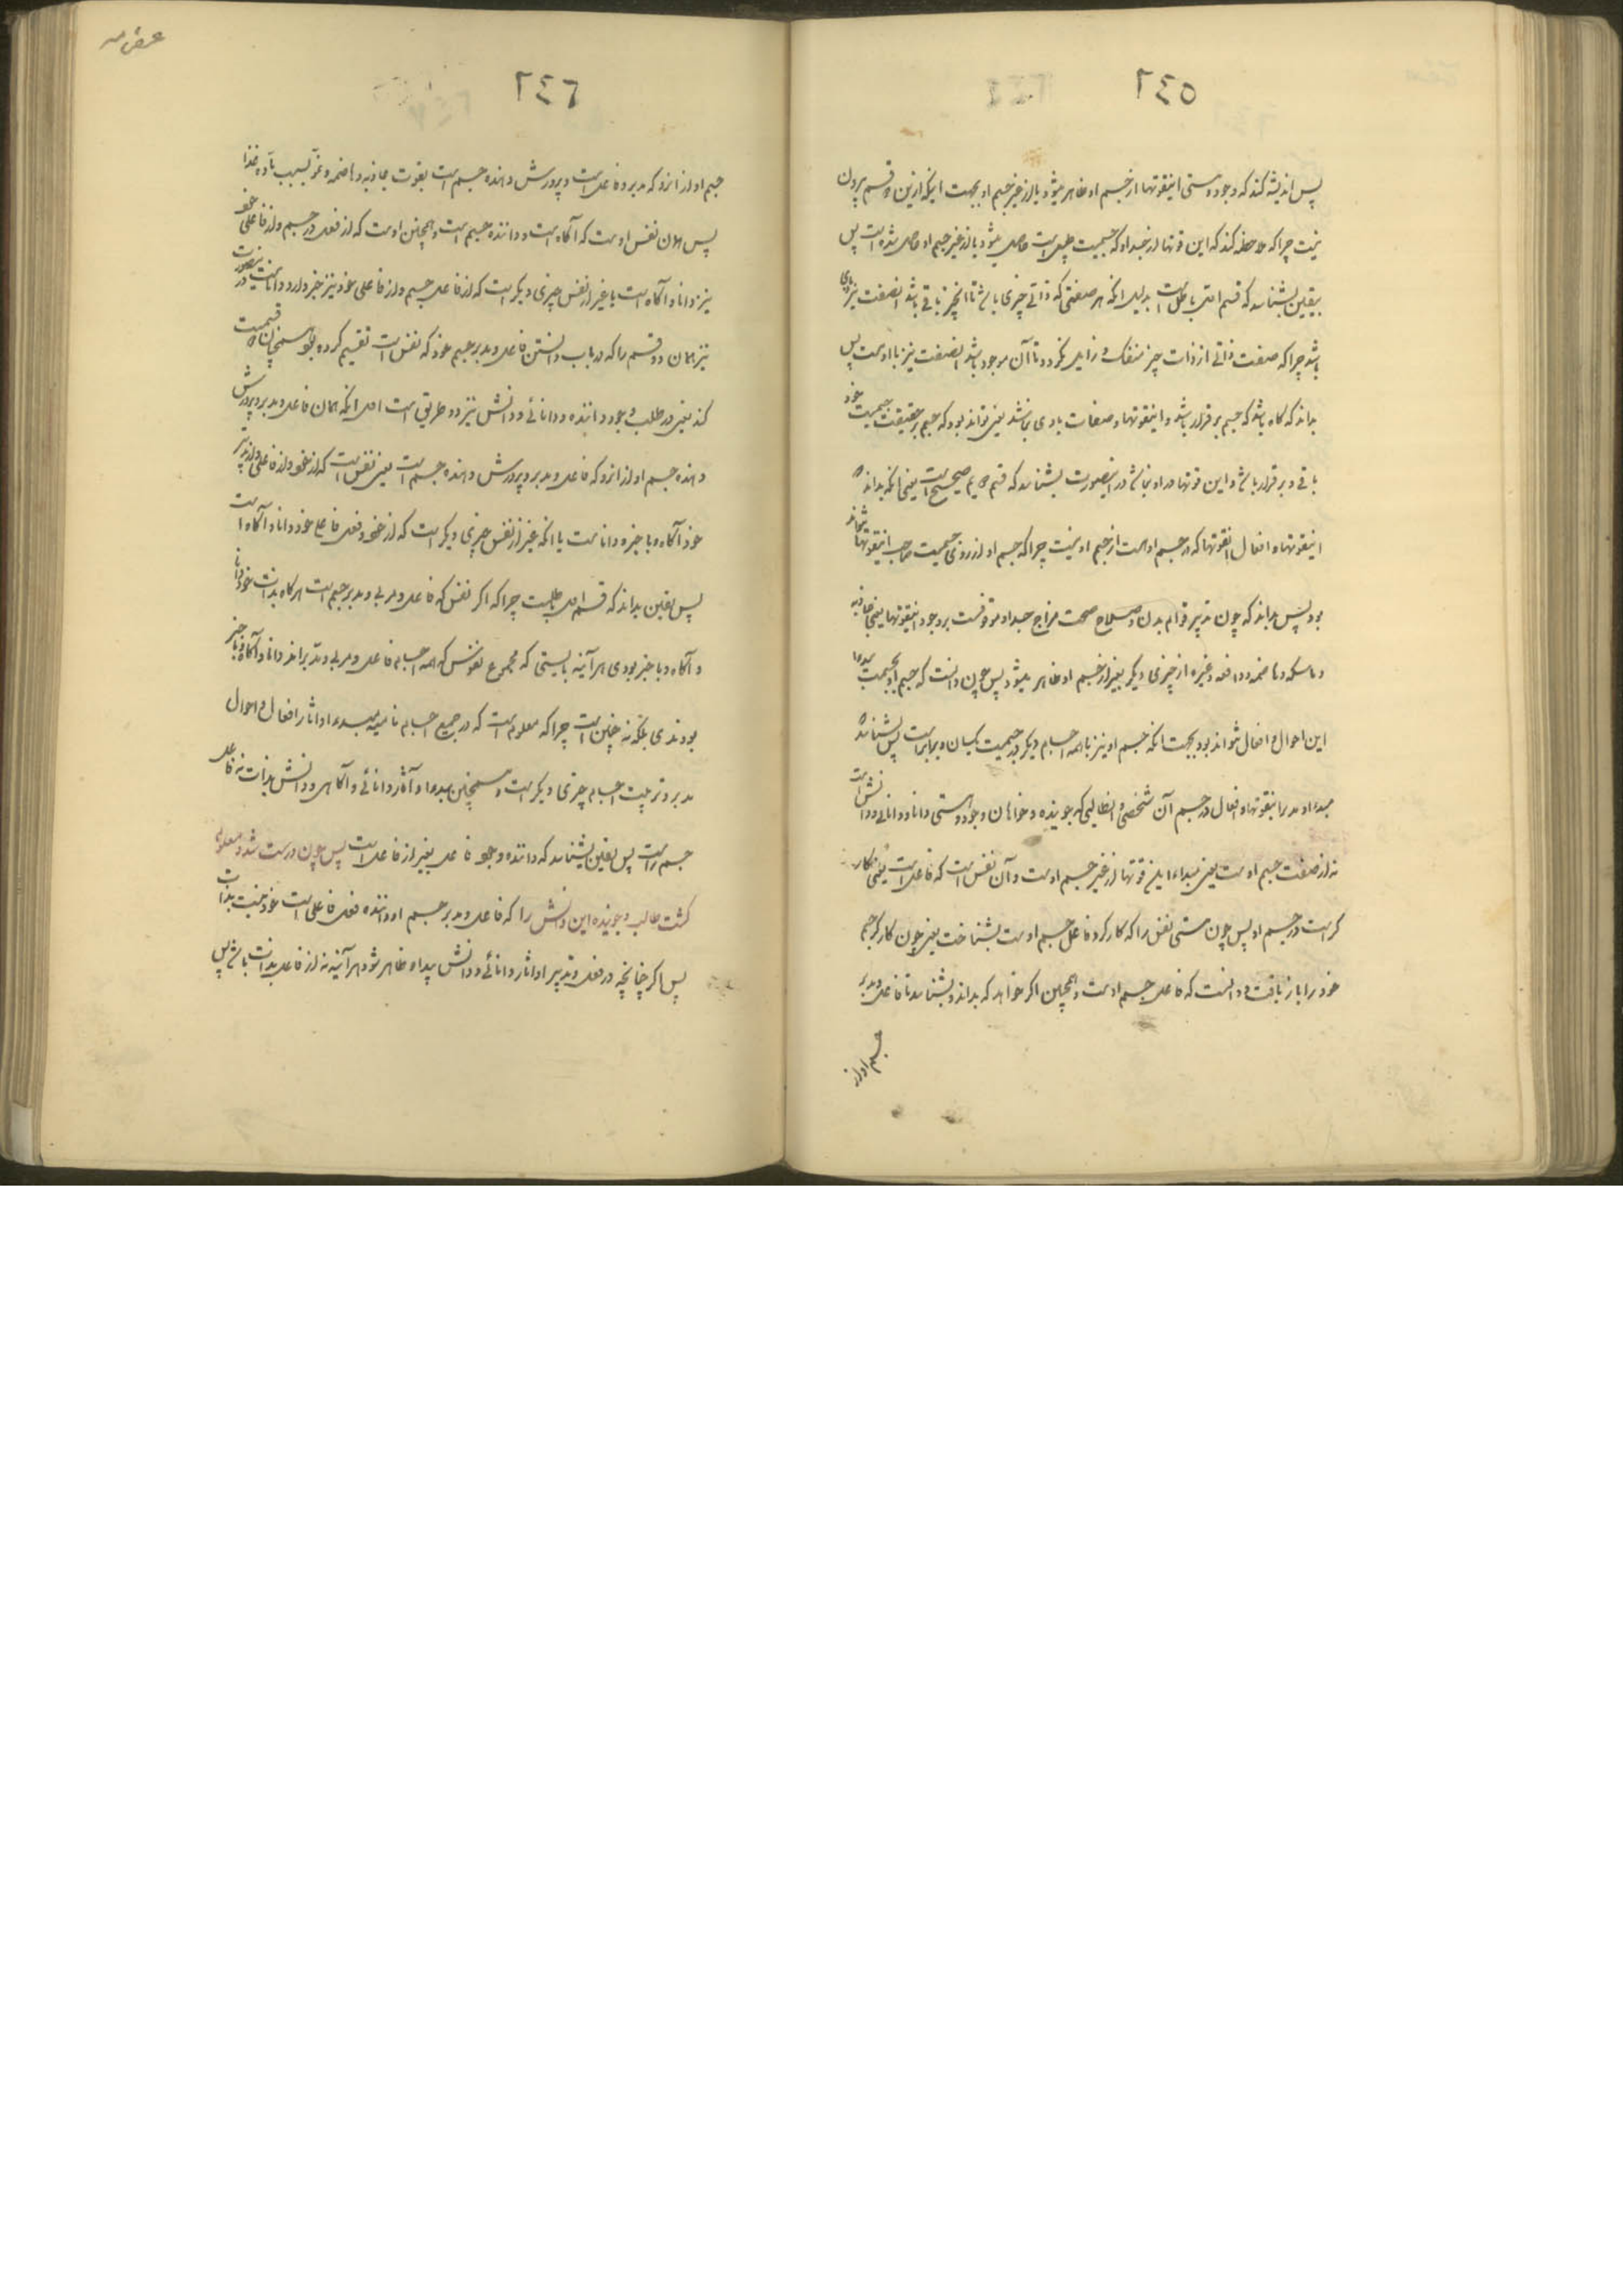 ٢٤٥
پس اندیشه کند که وجود و هستی اینقوتها از جسم او ظاهر میشود یا از غیر جسم او بجهت اینکه ازین دو قسم بیرون
نیست چرا که ملاحظه کند که این قوتها از جسد او که جسمیت است حاصل میشود یا از غیر جسم او حاصل شده است پس
بیقین بشناسد که قسم اول باطل است بدلیل انکه هر صفتی که ذاتی چیزی باشد تا انچیز باقی باشد انصفت نیز باقی
باشد چرا که صفت ذاتی از ذات چیز منفک و زایل نکردد تا آن موجود باشد انصفت نیز با اوست پس
بداند که کاه باشد که جسم برقرار باشد و اینقوتها و صفات با وی نباشد یعنی تواند بود که جسم بر حقیقت جسمیت خود
باقی و برقرار باشد و این قوتها در او نباشد در اینصورت بشناسد که قسم دویم صحیح است یعنی انکه بداند که
اینقوتها و افعال انقوتها که در جسم اوست از جسم او نیست چرا که جسم او از روی جسمیت صاحب اینقوتها نتواند
بود پس بداند که چون تدبیر قوام بدن و صلاح صحت مزاج جسد او موقوفست بر وجود اینقوتها یعنی جاذبه
و ماسکه و هاضمه و دافعه و غیره از چیزی دیکر بغیر از جسم او ظاهر میشود پس چون دانست که جسم او بجسمیت مبدء
این احوال و افعال نتواند بود بجهت انکه جسم او نیز با همه اجسام دیکر در جسمیت یکسان و برابر است پس بشناسد که
مبدء و مدبر اینقوتها و افعال در جسم آن شخصی و انطالبی که جوینده و خواهان وجود و هستی دانا و دانائی و دانش است
نه از صفت جسم اوست یعنی مبداء این قوتها از غیر جسم اوست و آن نفس است که فاعل است یعنی کار
کر است در جسم او پس چون هستی نفس را که کارکر و فاعل جسم اوست بشناخت یعنی چون کارکر جسم
خود را باز یافت و دانست که فاعل جسم اوست و همچنین اکر خواهد که بداند و بشناسد تا فاعل و مدبر
جسم او از
٢٤٦
جسم او از انرو که مدبر و فاعل است و پرورش دهنده جسم است بقوت جاذبه و هاضمه و نمو بسبب ماده غذا
پس همان نفس اوست که آکاه است و داننده جسم است و همچنین اوست که از فعل در جسم و از فاعلی خود
نیز دانا و آکاه است یا غیر از نفس چیزی دیکر است که از فاعل جسم و از فاعلی خود نیز خبر دارد و دانا است در اینصورت
نیز همان دو قسم را که در باب دانستن فاعل و مدبر جسم خود که نفس است تقسیم کرده بود همچنان قسمت
کند یعنی در طلب وجود داننده و دانائی و دانش نیز دو طریق است اول انکه همان فاعل و مدبر و پرورش
دهنده جسم او از انرو که فاعل و مدبر و پرورش دهنده جسم است یعنی نفس است که از خود و از فاعلی و از تدبیر
خود آکاه و با خبر و دانا است یا انکه غیر از نفس چیزی دیکر است که از خود و فعل فاعلی خود دانا و آکاه است
پس یقین بداند که قسم اول باطلست چرا که اکر نفس که فاعل و مربی و مدبر جسم است هرکاه بذات خود دانا
و آکاه و با خبر بودی هرآینه بایستی که مجموع نفوس که همه اجسام فاعل و مربی و تدبیراند دانا و آکاه و با خبر
بودندی بلکه نه چنین است چرا که معلوم است که در جمیع اجسام نامیه مبدء او اثار افعال و احوال
مدبر و تربیت اجسام چیزی دیکر است و همچنین مبدء او آثار دانائی و آکاهی و دانش بذات نه فاعل
جسم راست پس یقین بشناسد که داننده وجود فاعل بغیر از فاعل است پس چون درست شد و معلوم
کشت طالب و جوینده این دانش را که فاعل و مدبر جسم او داننده فعل فاعلی است خود نیست بذات
پس اکر چنانچه در فعل و تدبیر او اثار دانائی و دانش پیدا و ظاهر شود هرآینه نه از فاعل بذات باشد پس